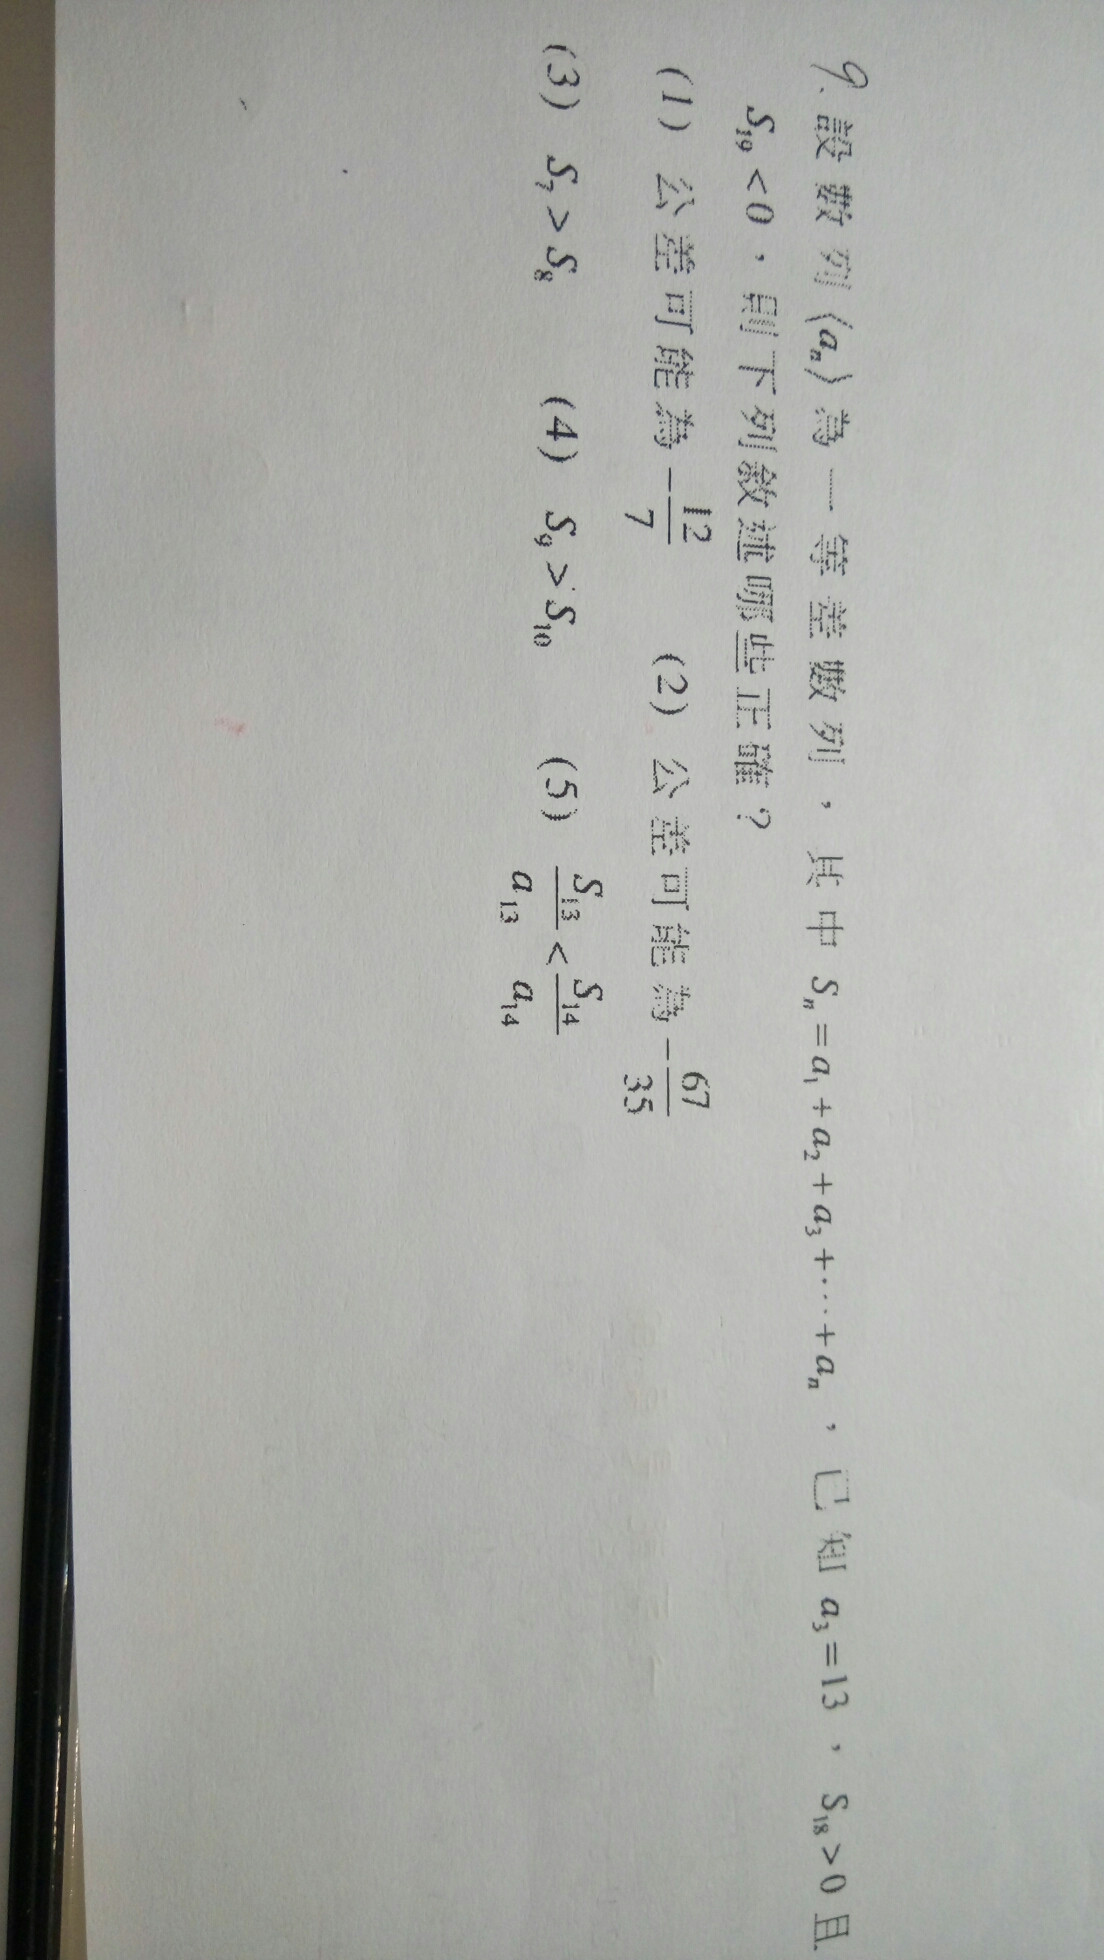 9. 設數列⟨aₙ⟩為一等差數列，其中 Sₙ=a₁+a₂+a₃+⋯+aₙ，已知 a₃=13，S₁₈>0 且
S₁₉<0，則下列敘述哪些正確？
(1) 公差可能為 -12/7 (2) 公差可能為 -67/35
(3) S₇>S₈ (4) S₉>S₁₀ (5) S₁₃/a₁₃ < S₁₄/a₁₄